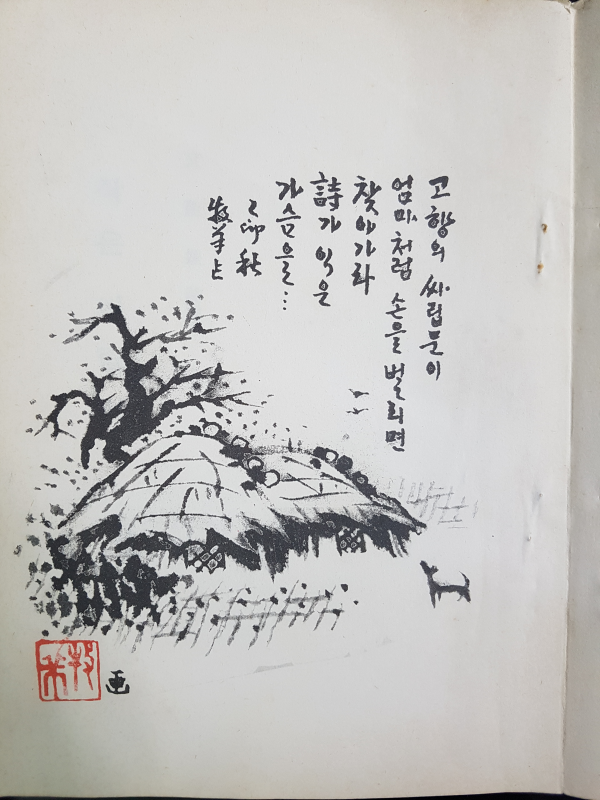 고향의 싸립문이
엄마처럼 손을 벌리면
찾아가라
詩가 익은
가슴을…
乙卯秋
牧羊上
画